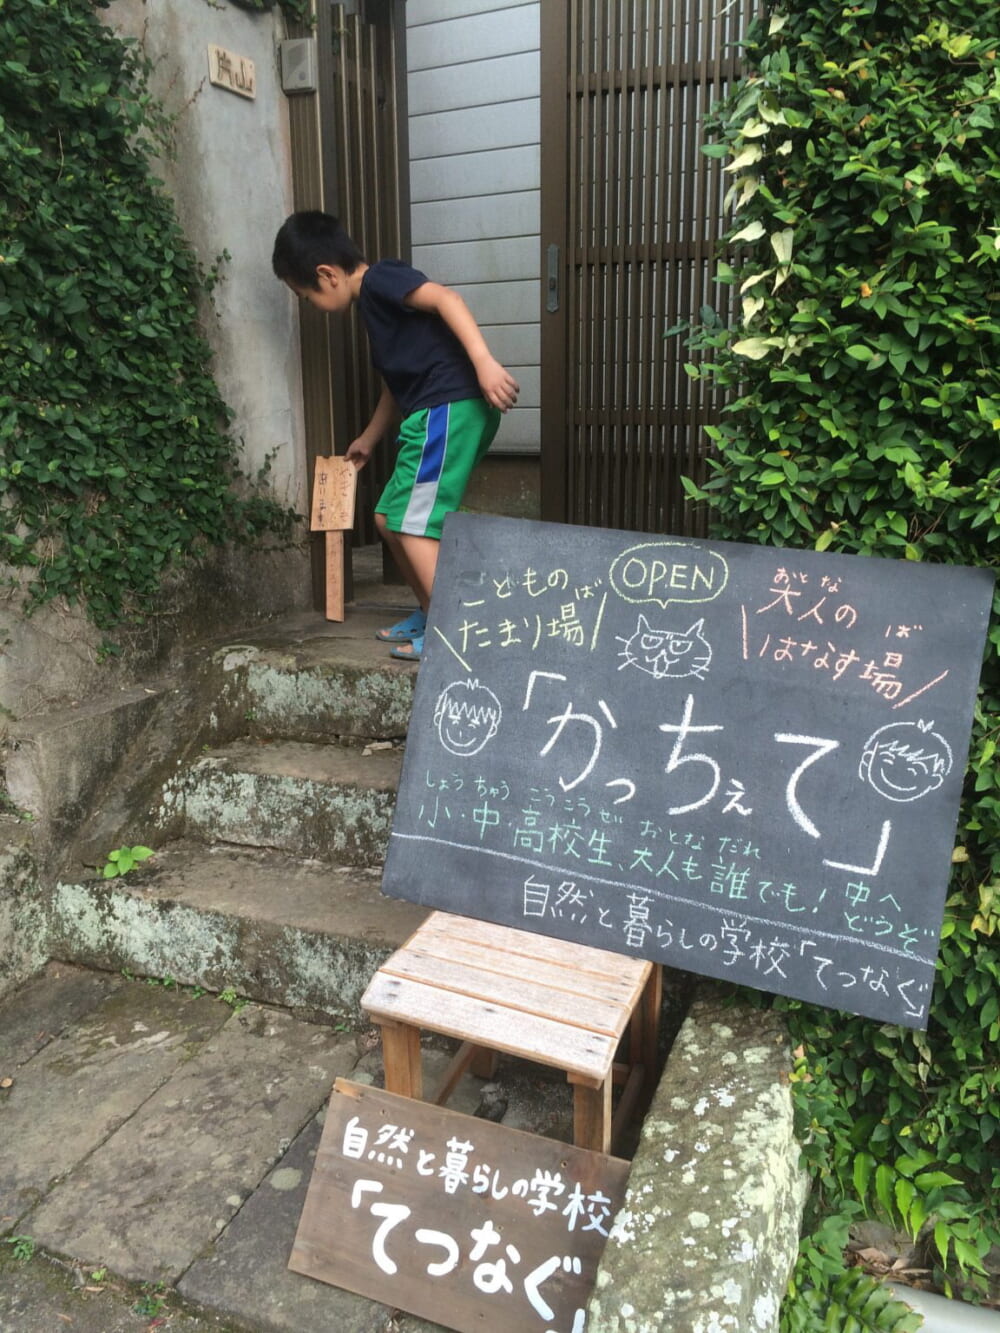 片山
やぎ
あります
こどもの
ば
たまり場
OPEN
おとな
大人の
ば
はなす場
「かっちぇて」
しょう ちゅう こうこうせい おとな だれ
小・中・高校生、大人も誰でも！中へ
どうぞ
自然と暮らしの学校「てつなぐ」
自然と暮らしの学校
「てつなぐ」